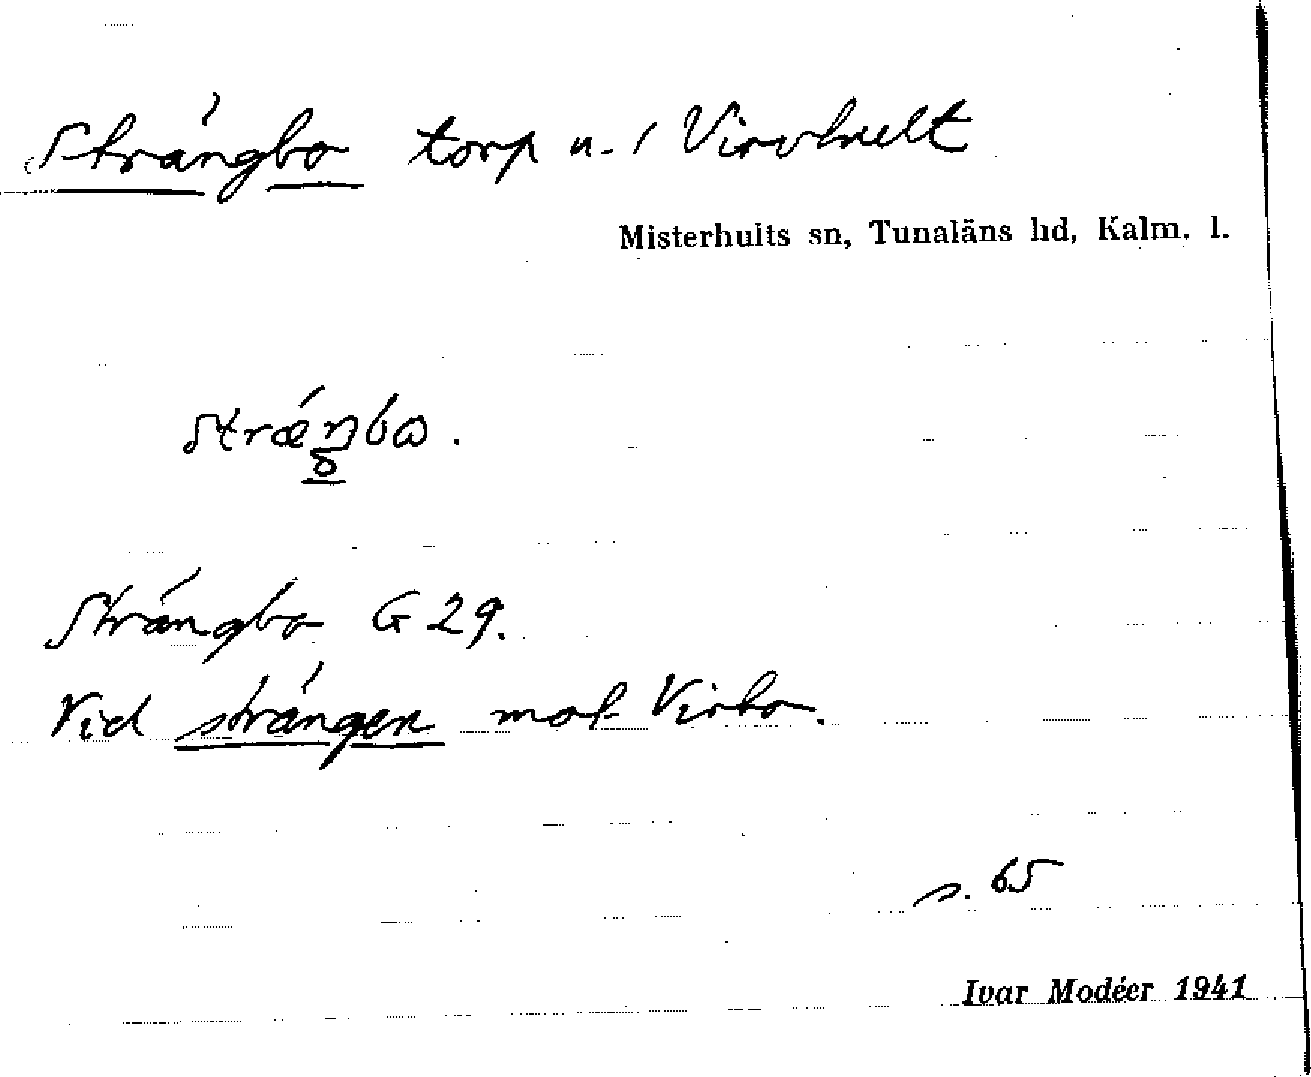 Strångbo torp u. / Virvhult
Misterhults sn, Tunaläns hd, Kalm. l.
Strångbo G 29.
Vid strången mot Virbo.
s. 65
Ivar Modéer 1941